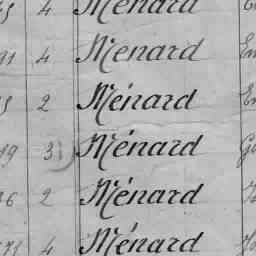 4 Ménard
91 4 Ménard En
2 Ménard En
19 3 Ménard
16 2 Ménard
71 4 Ménard